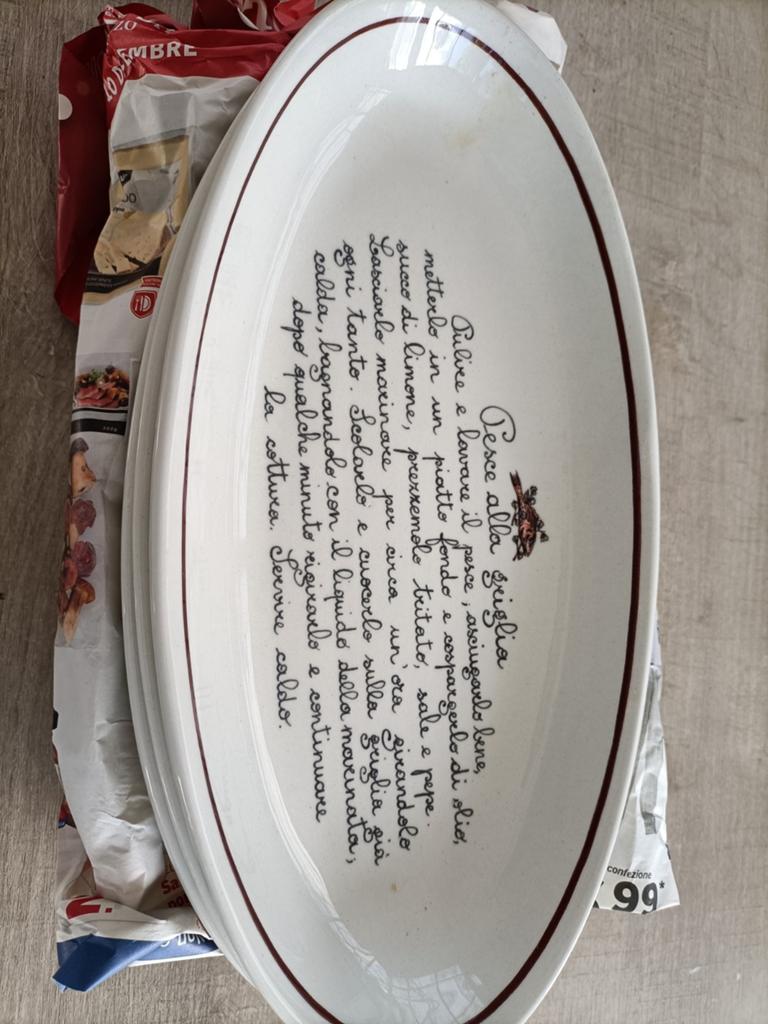 Pesce alla griglia
Pulire e lavare il pesce, asciugarlo bene,
metterlo in un piatto fondo e cospargerlo di olio,
succo di limone, prezzemolo tritato, sale e pepe.
Lasciarlo marinare per circa un'ora girandolo
ogni tanto. Scolarlo e cuocerlo sulla griglia già
calda, bagnandolo con il liquido della marinata,
dopo qualche minuto rigirarlo e continuare
la cottura. Servire caldo.
confezione
99*